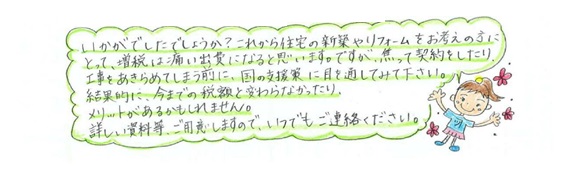 いかがでしたでしょうか？これから住宅の新築やリフォームをお考えの方に
とって、増税は痛い出費になると思います。ですが、焦って契約をしたり
工事をあきらめてしまう前に、国の支援策に目を通してみて下さい。
結果的に、今までの税額と変わらなかったり、
メリットがあるかもしれません。
詳しい資料等、ご用意しますので、いつでもご連絡ください。